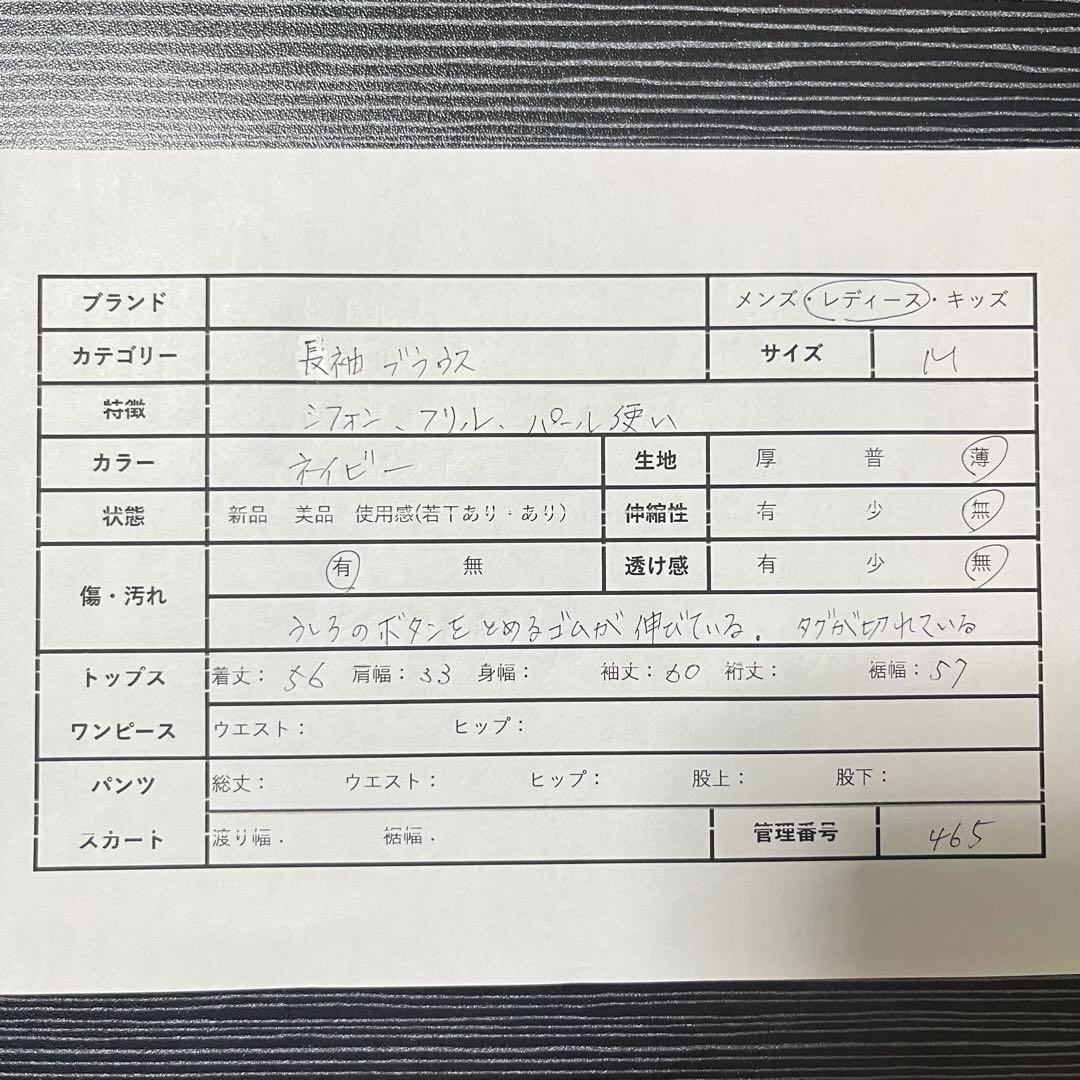 ブランド メンズ・レディース・キッズ
カテゴリー 長袖 ブラウス サイズ M
特徴 シフォン、フリル、パール使い
カラー ネイビー 生地 厚 普 薄
状態 新品 美品 使用感(若干あり・あり) 伸縮性 有 少 無
傷・汚れ 有 無 透け感 有 少 無
うしろのボタンをとめるゴムが伸びている。 タグが切れている
トップス 着丈：56 肩幅：33 身幅： 袖丈：60 裄丈： 裾幅：57
ワンピース ウエスト： ヒップ：
パンツ 総丈： ウエスト： ヒップ： 股上： 股下：
スカート 渡り幅： 裾幅： 管理番号 465